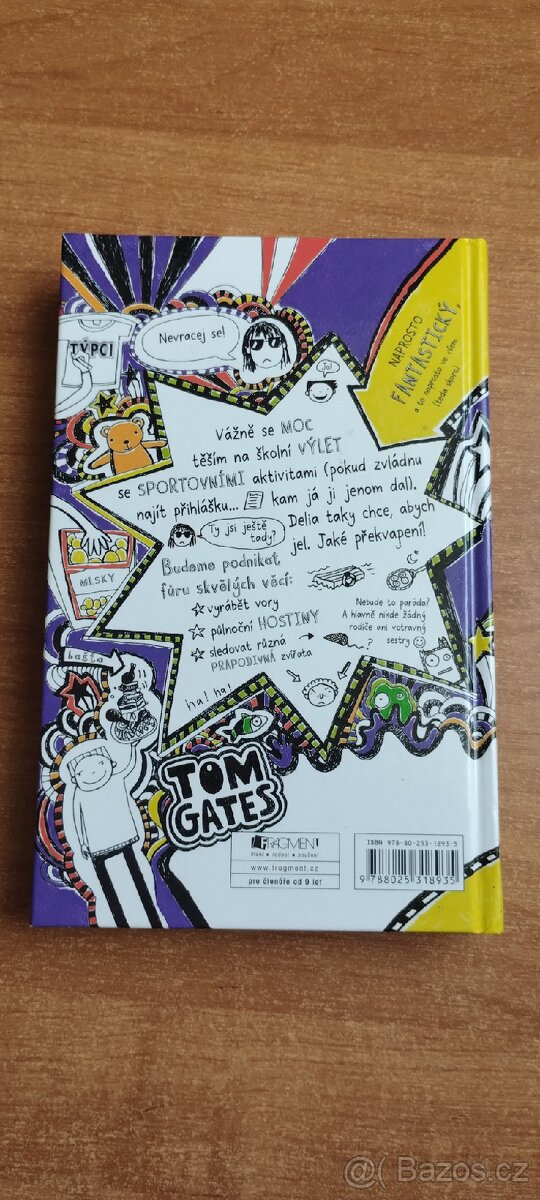 Nevracej se!
TÝPCI
NAPROSTO
FANTASTICKÝ,
a to naprosto ve všem
(teda skoro)
Jo!
Vážně se MOC
těším na školní VÝLET
se SPORTOVNÍMI aktivitami (pokud zvládnu
najít přihlášku... kam já ji jenom dal).
Ty jsi ještě
tady?
Delia taky chce, abych
jel. Jaké překvapení!
Budeme podnikat
fůru skvělých věcí:
vyrábět vory
půlnoční HOSTINY
sledovat různá
PRAPODIVNÁ zvířata
Nebude to paráda?
A hlavně nikde žádný
rodiče ani votravný
sestry
?
MLSKY
bašta
ha! ha!
TOM
GATES
FRAGMENT
čtení • radost • poučení
www.fragment.cz
pro čtenáře od 9 let
ISBN 978-80-253-1893-5
9 788025 318935
Bazos.cz